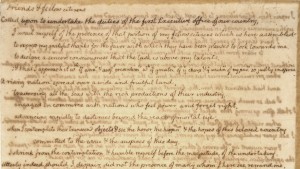 Friends & fellow citizens
Called upon to undertake the duties of the first Executive office of our country,
I avail myself of the presence of that portion of my fellow citizens which is here assembled
to express my grateful thanks for the favor with which they have been pleased to look towards me
to declare a sincere consciousness that the task is above my talents,
A rising nation, spread over a wide and fruitful land,
traversing all the seas with the rich productions of their industry
engaged in commerce with nations who feel power and forget right
advancing rapidly to destinies beyond the reach of mortal eye
when I contemplate these objects & see the honor the & the hopes of this beloved country
committed to the issue & the auspices of this day
I shrink from the contemplation & humble myself before the magnitude of the undertaking
utterly indeed should I despair did not the presence of many whom I here see remind me